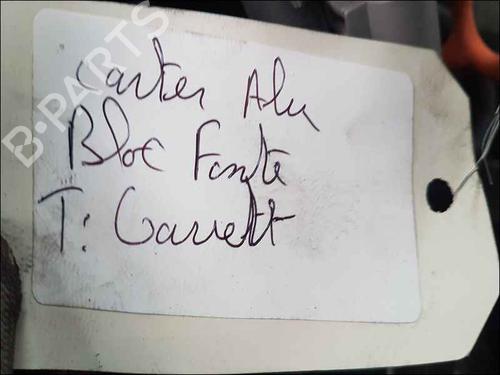 B-PARTS
Carter Alu
Bloc Fonte
T: Garrett